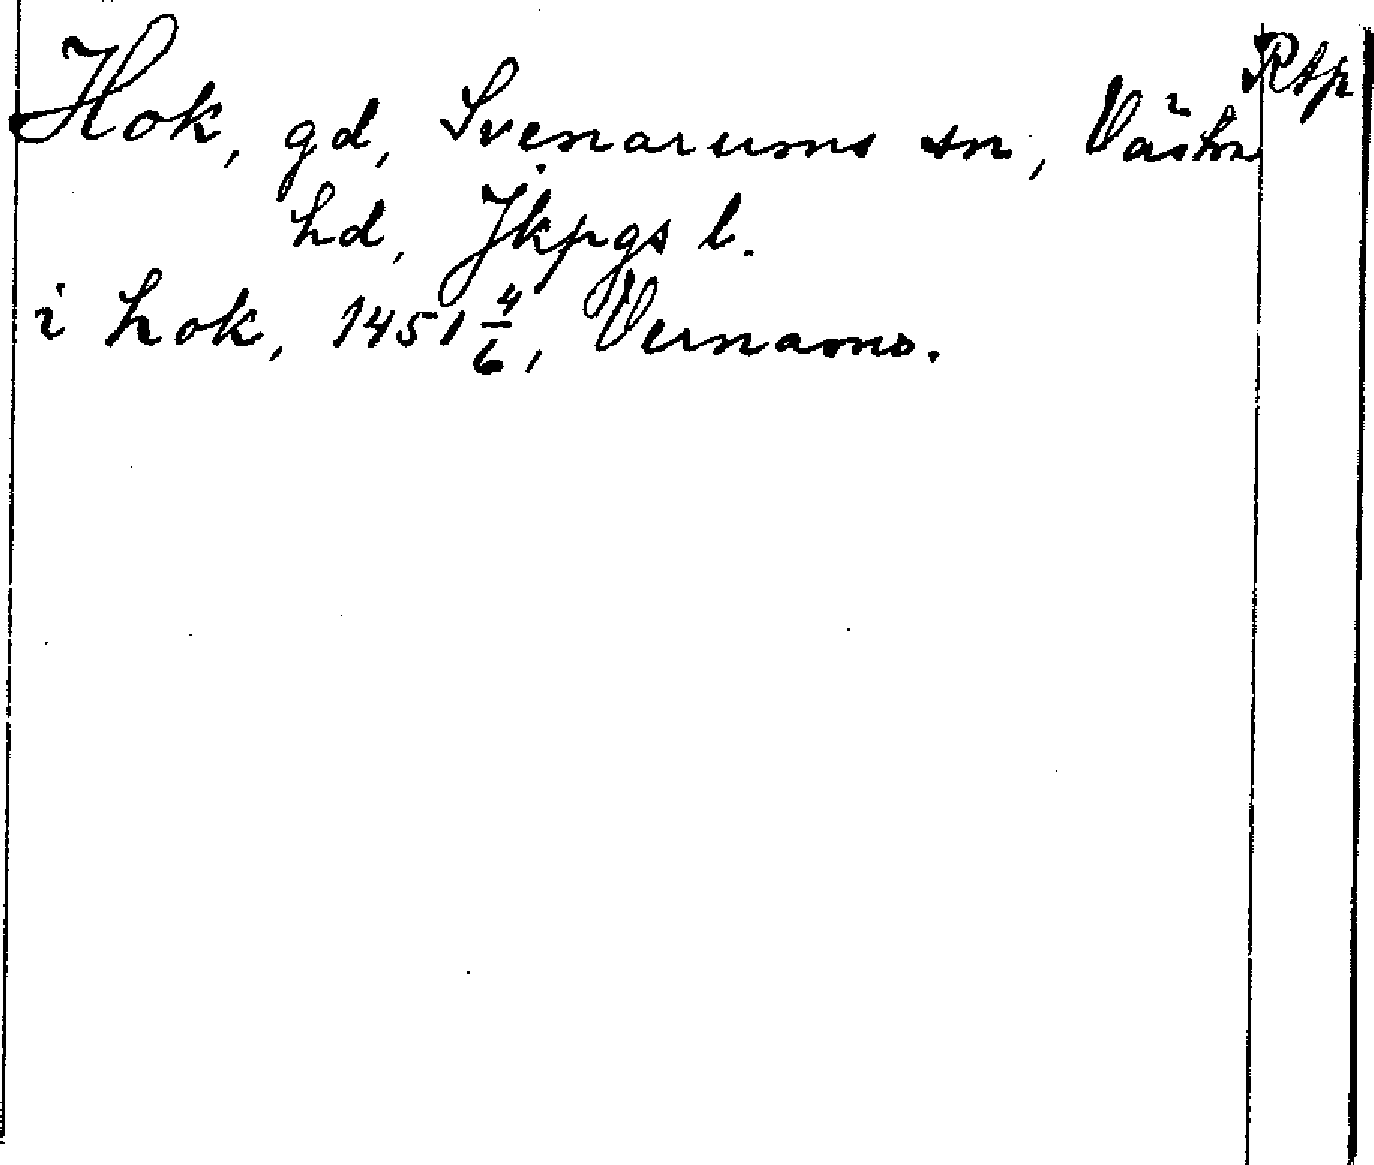 Rsp
Hok, gd, Svenarums sn, Västra
hd, Jkpgs l.
i hok, 1451 4/6, Vernamo.